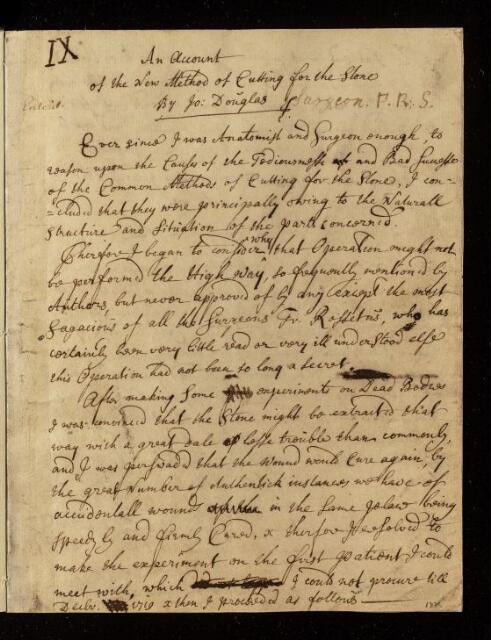 IX
An Account
of the New Method of Cutting for the Stone
By Jo: Douglas Surgeon. F. R. S.
Ever since I was Anatomist and Surgeon enough to
reason upon the Causes of the Tediousness and Bad Success
of the Common Methods of Cutting for the Stone, I con=
=cluded that they were principally owing to the Naturall
Structure and Situation of the parts concerned.
Therefore I began to consider why that Operation might not
be performed the High way, so frequently mentioned by
Authors, but never approved of by any Except the most
Sagacious of all the Surgeons Fr. Rossetus, who has
certainly been very little read or very ill understood else
this Operation had not been so long a secret.
After making Some experiments on Dead Bodies
I was convinced that the Stone might be extracted that
way with a great dale of lesse trouble than commonly,
and I was perswad'd that the Wound would Cure again, by
the great Number of Authentick instances we have of
accidentall wound in the same place being
speedyly and firmly Cured, & therfor Resolved to
make the experiment on the first patient I could
meet with, which I could not procure till
Decbr. 1719 & then I proceeded as follows